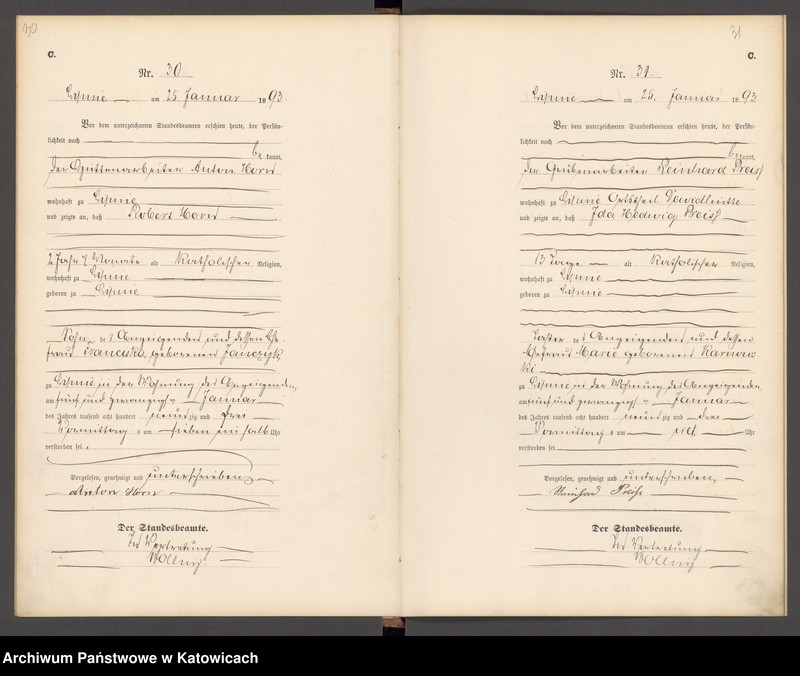 30
C.
Nr. 30
am 25 Januar 1893.
Vor dem unterzeichneten Standesbeamten erschien heute, der Persön-
lichkeit nach
be kannt,
der Hüttenarbeiter Anton Horn
wohnhaft zu
und zeigte an, daß Robert Horn
2 Jahr 7 Monate alt Katholischer Religion,
wohnhaft zu
geboren zu
Sohn des Anzeigenden und dessen Ehe-
frau Franciska, geborenen Janczyk
zu in der Wohnung des Anzeigenden,
am fünf und zwanzigsten Januar
des Jahres tausend acht hundert neunzig und drei
Vormittag s um sieben ein halb Uhr
verstorben sei.
Vorgelesen, genehmigt und unterschrieben
Anton Horn
Der Standesbeamte.
In Vertretung
31
C.
Nr. 31.
am 25. Januar 1893
Vor dem unterzeichneten Standesbeamten erschien heute, der Persön-
lichkeit nach
be kannt,
der Grubenarbeiter Reinhard Preiß
wohnhaft zu Ortstheil
und zeigte an, daß Ida Hedwig Preiß
13 Tage alt Katholischer Religion,
wohnhaft zu
geboren zu
Tochter des Anzeigenden und dessen
Ehefrau Marie geborenen
zu in der Wohnung des Anzeigenden
am fünf und zwanzigsten Januar
des Jahres tausend acht hundert neunzig und drei
Vormittag s um elf Uhr
verstorben sei
Vorgelesen, genehmigt und unterschrieben,
Reinhard Preiß
Der Standesbeamte.
In Vertretung
Archiwum Państwowe w Katowicach